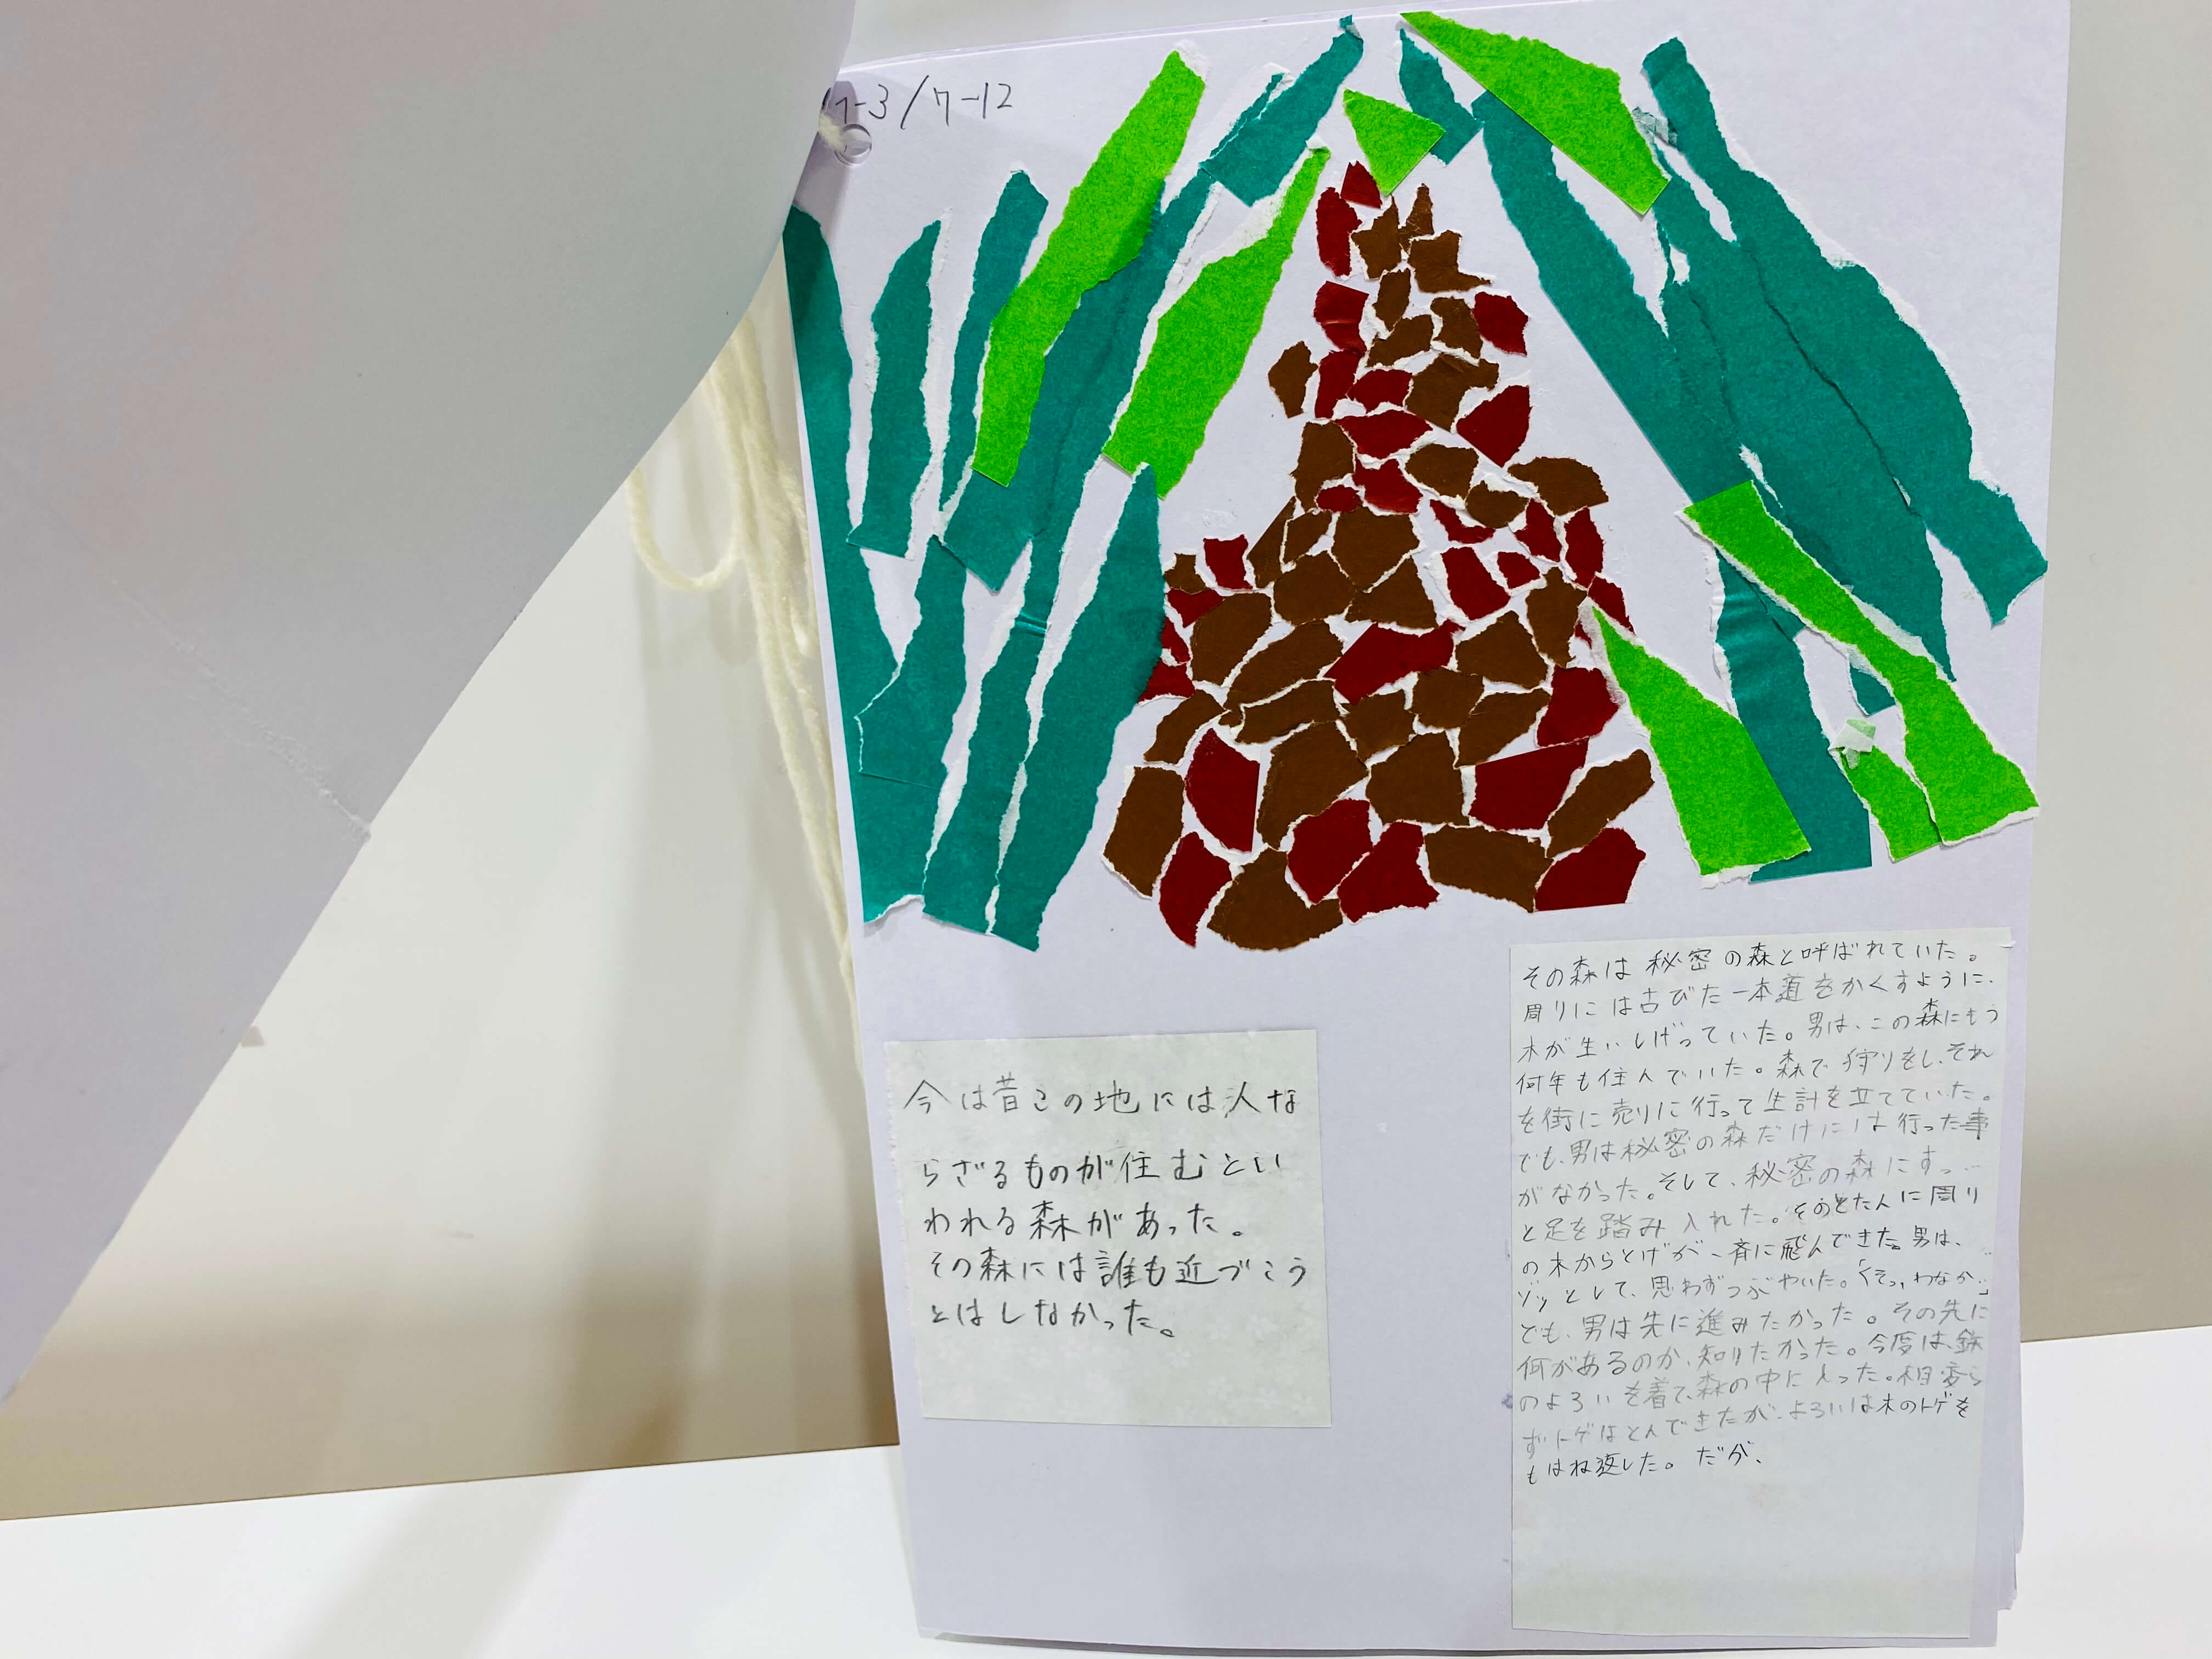 1-3/7-12
今は昔この地には人な
らざるものが住むとい
われる森があった。
その森には誰も近づこう
とはしなかった。
その森は秘密の森と呼ばれていた。
周りには古びた一本道をかくすように、
木が生いしげっていた。男は、この森にもう
何年も住んでいた。森で狩りをし、それ
を街に売りに行って生計を立てていた。
でも、男は秘密の森だけには行った事
がなかった。そして、秘密の森にすっ
と足を踏み入れた。そのとたんに周り
の木からとげが一斉に飛んできた。男は、
ゾッとして、思わずつぶやいた。「くそっ、わなか」
でも、男は先に進みたかった。その先に
何があるのか、知りたかった。今度は、鉄
のよろいを着て、森の中に入った。相変ら
ずトゲはとんできたが、よろいは木のトゲを
もはね返した。だが、